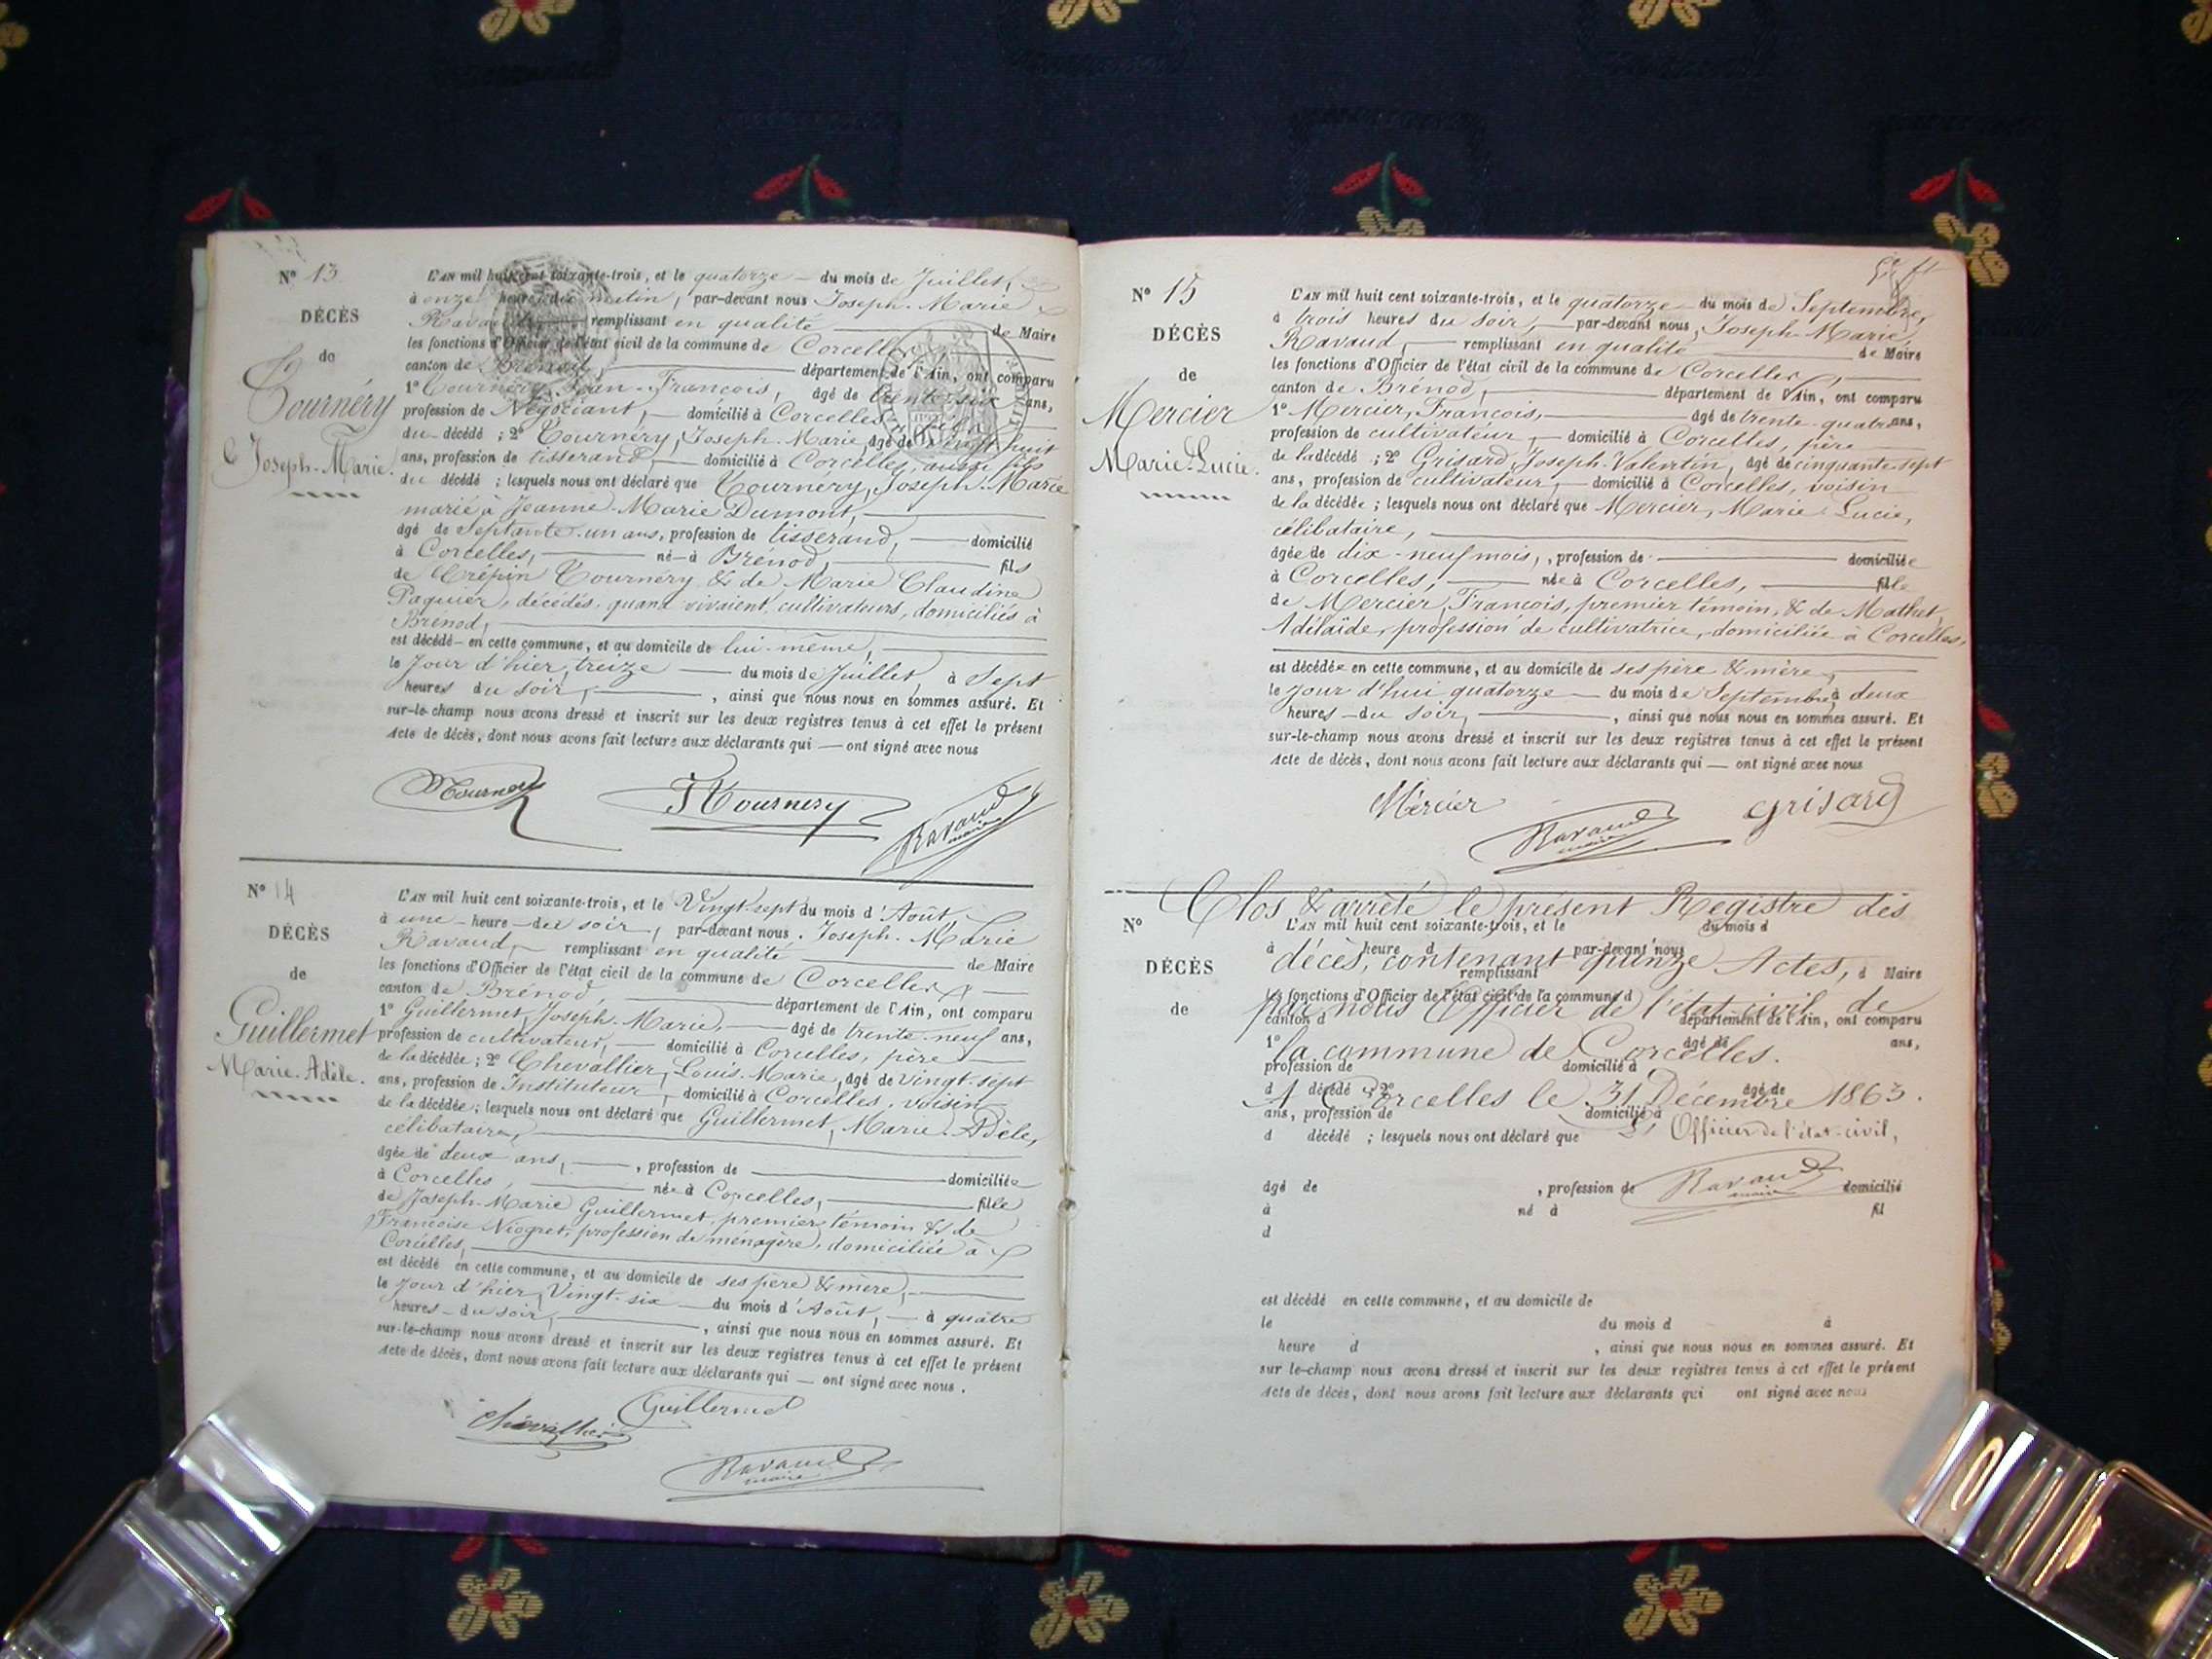 N° 13
DÉCÈS
de
Tournéry
Joseph-Marie.
L'AN mil huit cent soixante-trois, et le quatorze du mois de Juillet,
à onze heures du matin, par-devant nous Joseph-Marie
Ravaud, remplissant en qualité de Maire
les fonctions d'Officier de l'état civil de la commune de Corcelles
canton de Brénod, département de l'Ain, ont comparu
1° Tournéry, Jean-François, âgé de trente-six ans,
profession de Négociant, domicilié à Corcelles,
du décédé ; 2° Tournéry, Joseph-Marie, âgé de vingt huit
ans, profession de tisserand, domicilié à Corcelles, aussi fils
du décédé ; lesquels nous ont déclaré que Tournéry, Joseph-Marie
marié à Jeanne-Marie Dumont,
âgé de Septante-un ans, profession de tisserand, domicilié
à Corcelles, né à Brénod, fils
de Crépin Tournéry & de Marie Claudine
Paquier, décédés, quand vivaient, cultivateurs, domiciliés à
Brénod,
est décédé en cette commune, et au domicile de lui-même,
le Jour d'hier, treize du mois de Juillet, à Sept
heures du soir, , ainsi que nous nous en sommes assuré. Et
sur-le-champ nous avons dressé et inscrit sur les deux registres tenus à cet effet le présent
Acte de décès, dont nous avons fait lecture aux déclarants qui — ont signé avec nous
Tournery
JTournery
Ravaud
maire
N° 14
DÉCÈS
de
Guillermet
Marie-Adèle.
L'AN mil huit cent soixante-trois, et le Vingt-sept du mois d'Août,
à une heure du soir, par-devant nous. Joseph-Marie
Ravaud, remplissant en qualité de Maire
les fonctions d'Officier de l'état civil de la commune de Corcelles
canton de Brénod, département de l'Ain, ont comparu
1° Guillermet, Joseph-Marie, âgé de trente-neuf ans,
profession de cultivateur, domicilié à Corcelles, père
de la décédée ; 2° Chevallier, Louis-Marie, âgé de vingt-sept
ans, profession de Instituteur, domicilié à Corcelles, voisin
de la décédée ; lesquels nous ont déclaré que Guillermet, Marie-Adèle,
célibataire,
âgée de deux ans, , profession de domiciliée
à Corcelles, née à Corcelles, fille
de Joseph-Marie Guillermet, premier témoin & de
Françoise Niogret, profession de ménagère, domiciliée à
Corcelles,
est décédé en cette commune, et au domicile de ses père & mère,
le Jour d'hier, Vingt-six du mois d'Août, à quatre
heures du soir, , ainsi que nous nous en sommes assuré. Et
sur-le-champ nous avons dressé et inscrit sur les deux registres tenus à cet effet le présent
Acte de décès, dont nous avons fait lecture aux déclarants qui — ont signé avec nous.
Guillermet
Chevallier
Ravaud
maire
N° 15
DÉCÈS
de
Mercier
Marie-Lucie.
L'AN mil huit cent soixante-trois, et le quatorze du mois de Septembre,
à trois heures du soir, par-devant nous, Joseph-Marie,
Ravaud, remplissant en qualité de Maire
les fonctions d'Officier de l'état civil de la commune de Corcelles,
canton de Brénod, département de l'Ain, ont comparu
1° Mercier, François, âgé de trente-quatre ans,
profession de cultivateur, domicilié à Corcelles, père
de la décédé ; 2° Grisard, Joseph-Valentin, âgé de cinquante-sept
ans, profession de cultivateur, domicilié à Corcelles, voisin
de la décédée ; lesquels nous ont déclaré que Mercier, Marie-Lucie,
célibataire,
âgée de dix-neuf mois, , profession de domiciliée
à Corcelles, née à Corcelles, fille
de Mercier, François, premier témoin, & de Mathet,
Adélaïde, profession de cultivatrice, domiciliée à Corcelles,
est décédée en cette commune, et au domicile de ses père & mère,
le Jour d'hui quatorze du mois de Septembre, à deux
heures du soir, , ainsi que nous nous en sommes assuré. Et
sur-le-champ nous avons dressé et inscrit sur les deux registres tenus à cet effet le présent
Acte de décès, dont nous avons fait lecture aux déclarants qui — ont signé avec nous
Mercier
Grisard
Ravaud
maire
Clos & arrêté le présent Registre des
N°
L'AN mil huit cent soixante-trois, et le du mois d
à heure d par-devant nous
décès, contenant quinze Actes,
DÉCÈS
remplissant d Maire
les fonctions d'Officier de l'état civil de la commune d
de
par nous Officier de l'état-civil de
canton d département de l'Ain, ont comparu
1° âgé de ans,
la commune de Corcelles.
profession de domicilié à
d décédé ; 2° âgé de
A Corcelles le 31 Décembre 1863.
ans, profession de domicilié à
L'Officier de l'état-civil,
d décédé ; lesquels nous ont déclaré que
Ravaud
maire
âgé de , profession de domicilié
à né à fil
d
est décédé en cette commune, et au domicile de
le du mois d à
heure d , ainsi que nous nous en sommes assuré. Et
sur le-champ nous avons dressé et inscrit sur les deux registres tenus à cet effet le présent
Acte de décès, dont nous avons fait lecture aux déclarants qui ont signé avec nous